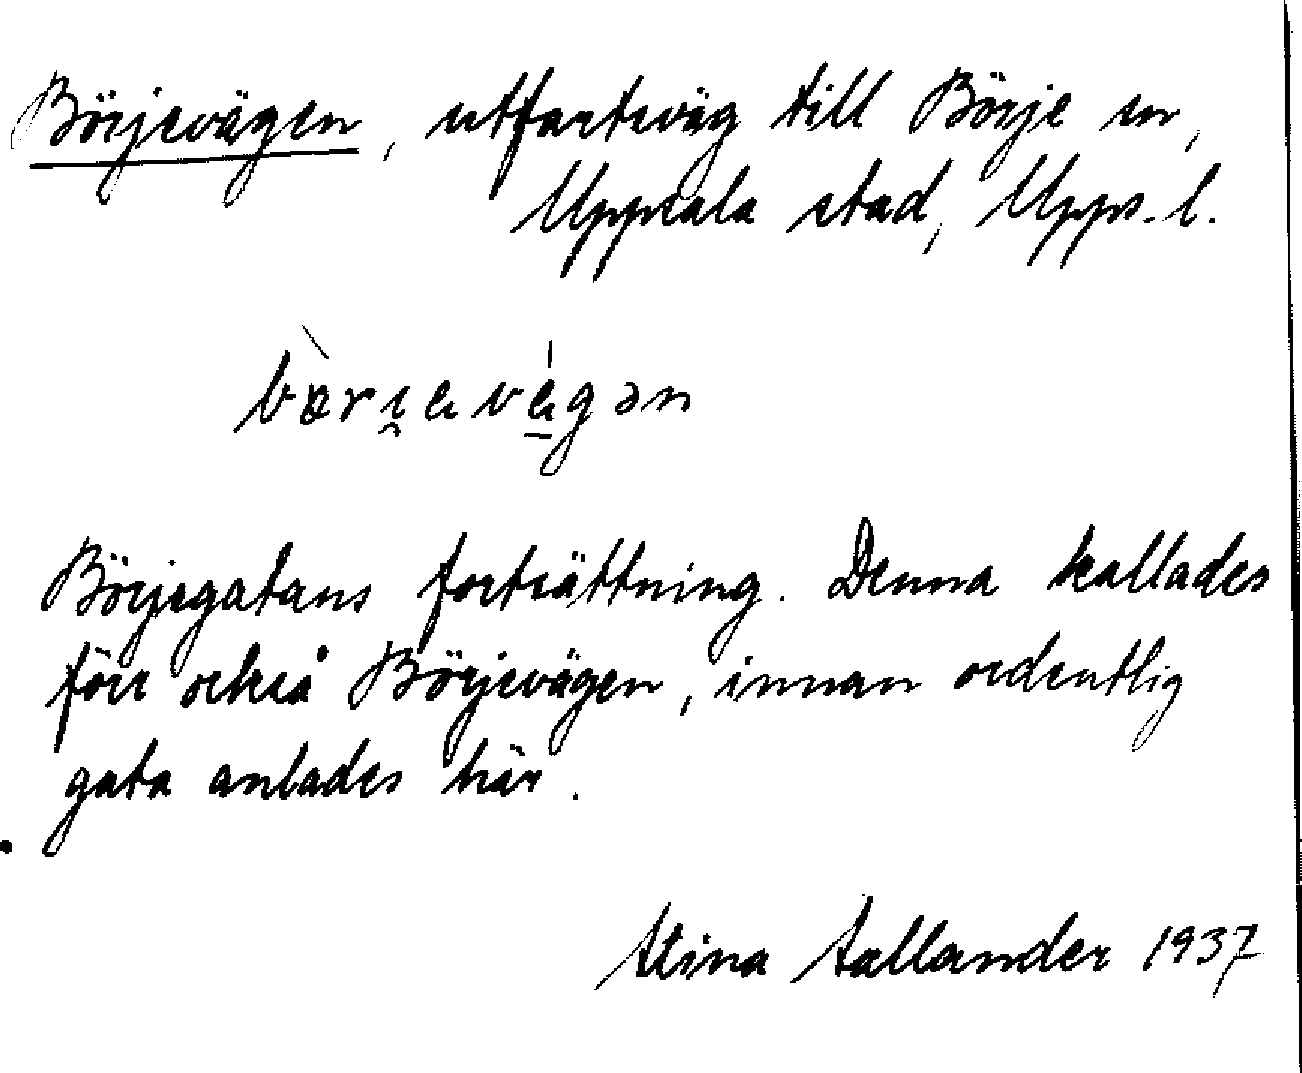 Börjevägen, utfartsväg till Börje sn,
Uppsala stad, Upps. l.
Börjegatans fortsättning. Denna kallades
förr också Börjevägen, innan ordentlig
gata anlades här.
Stina Hallander 1937